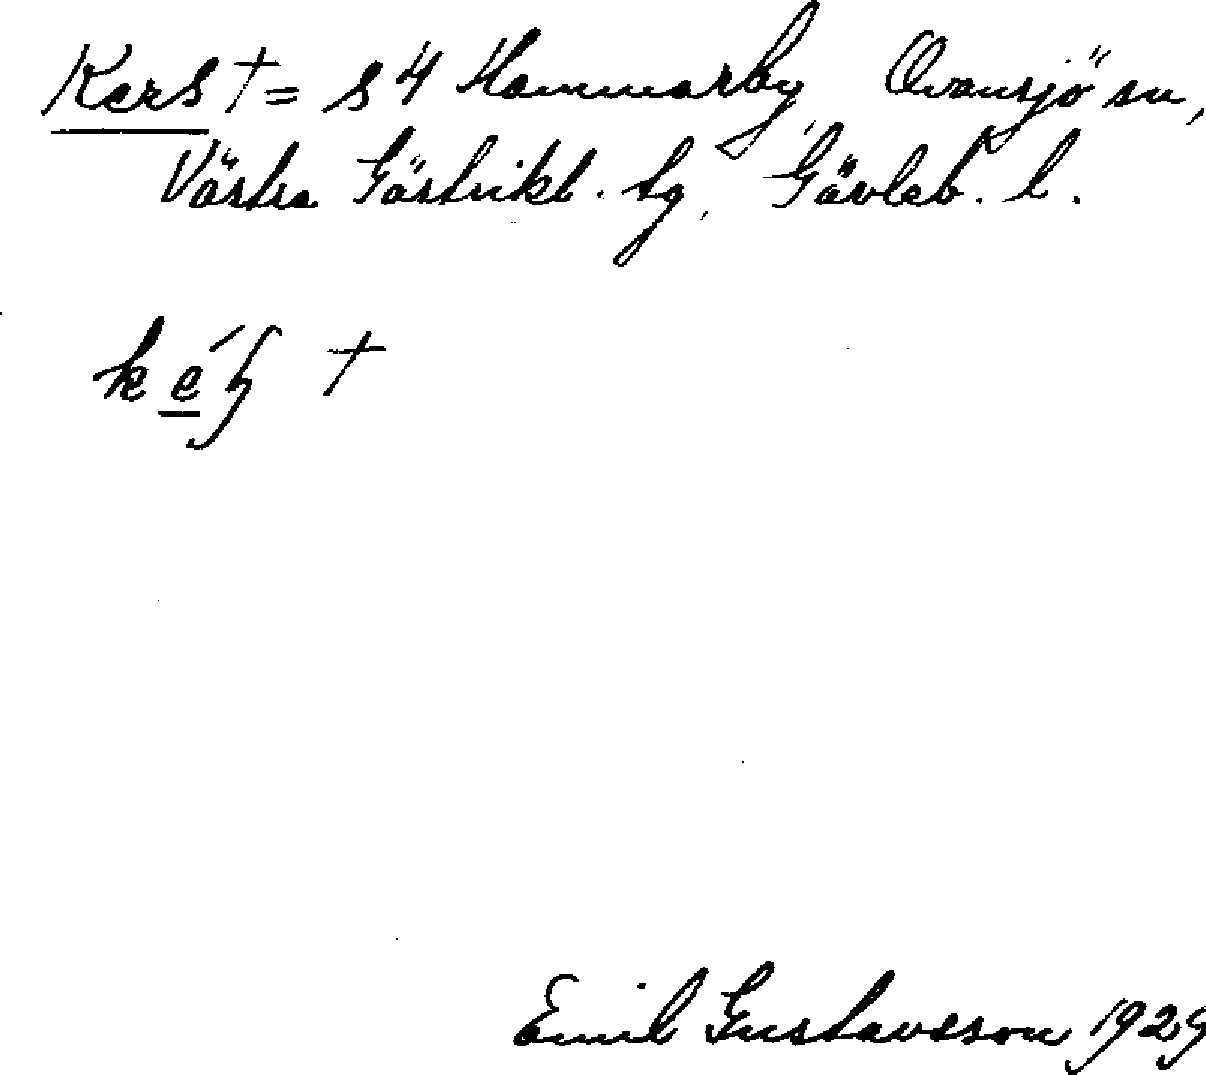 Kers † = s 4 Hammarby, Ovansjö sn,
Västra Gästrikl. tg, Gävleb. l.
†
Emil Gustavsson 1929